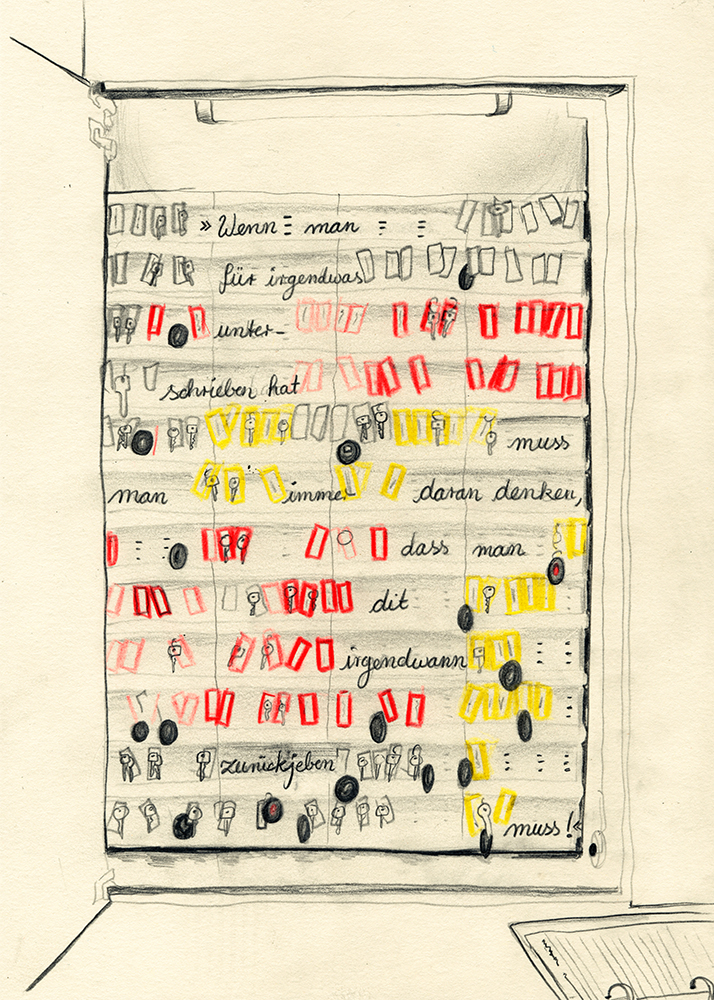 »Wenn man
für irgendwas
unter-
schrieben hat
muss
man immer daran denken,
dass man
dit
irgendwann
zurückjeben
muss!«